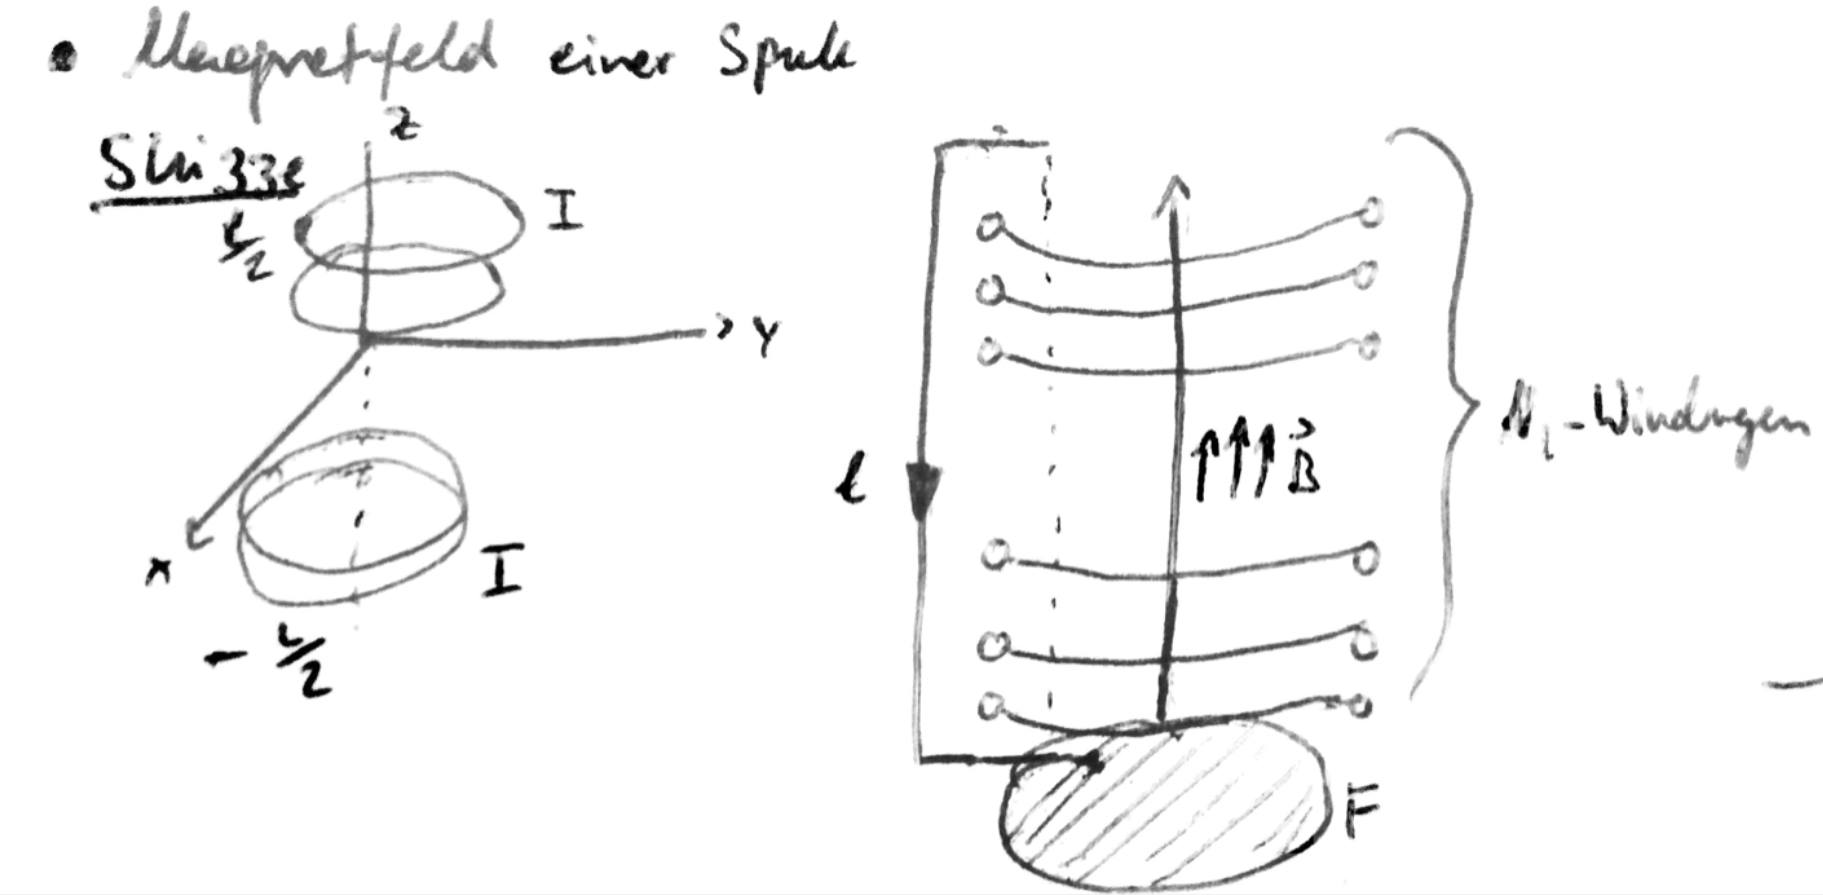 • Magnetfeld einer Spule
Skizze
z
I
l/2
y
x
I
- l/2
l
B⃗
N₁-Windungen
F